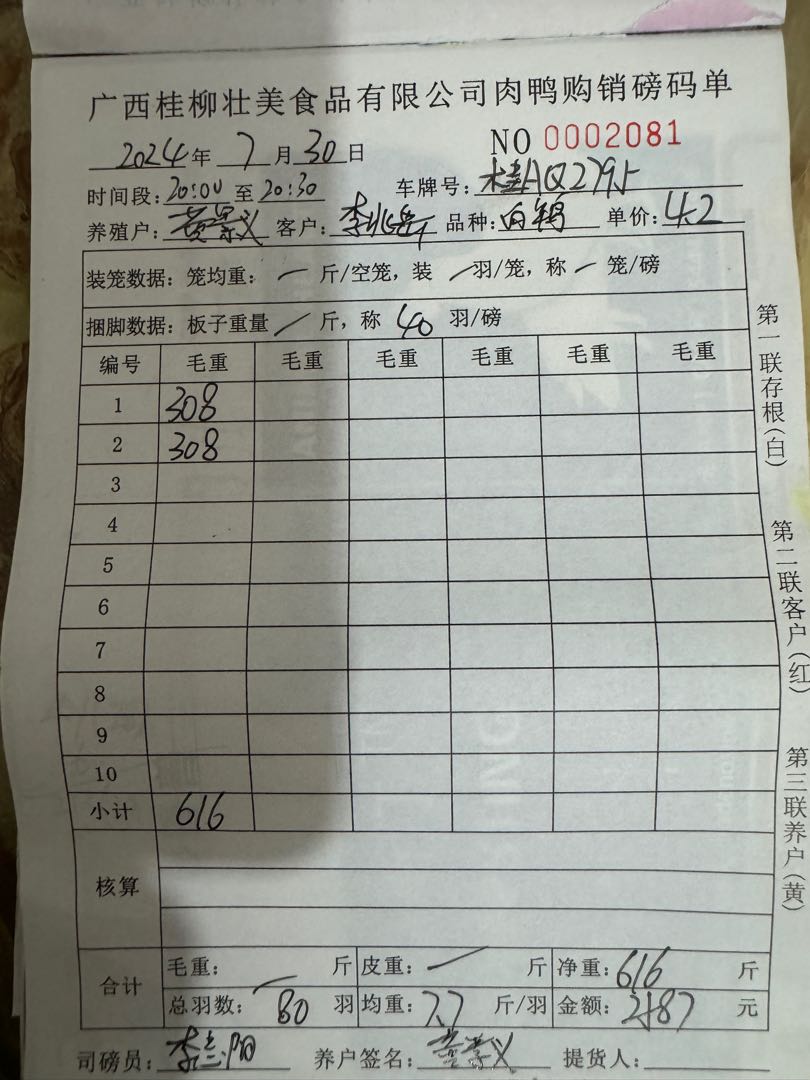 广西桂柳壮美食品有限公司肉鸭购销磅码单
2024年7月30日 NO 0002081
时间段:20:00至20:30 车牌号:桂AQ2795
养殖户:黄景义 客户:李兆岳 品种:白鸭 单价:4.2
装笼数据:笼均重:一斤/空笼,装 / 羽/笼,称一笼/磅
捆脚数据:板子重量 / 斤,称 40 羽/磅
编号 毛重 毛重 毛重 毛重 毛重 毛重
1 308
2 308
3
4
5
6
7
8
9
10
小计 616
核算
合计 毛重: 一 斤 皮重: 一 斤 净重:616 斤
总羽数:80 羽 均重:7.7 斤/羽 金额:2587 元
司磅员:李 阳 养户签名:黄景义 提货人:
第一联存根(白)
第二联客户(红)
第三联养户(黄)